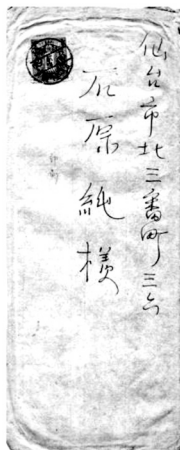 仙台市北三番町三六
石原純様